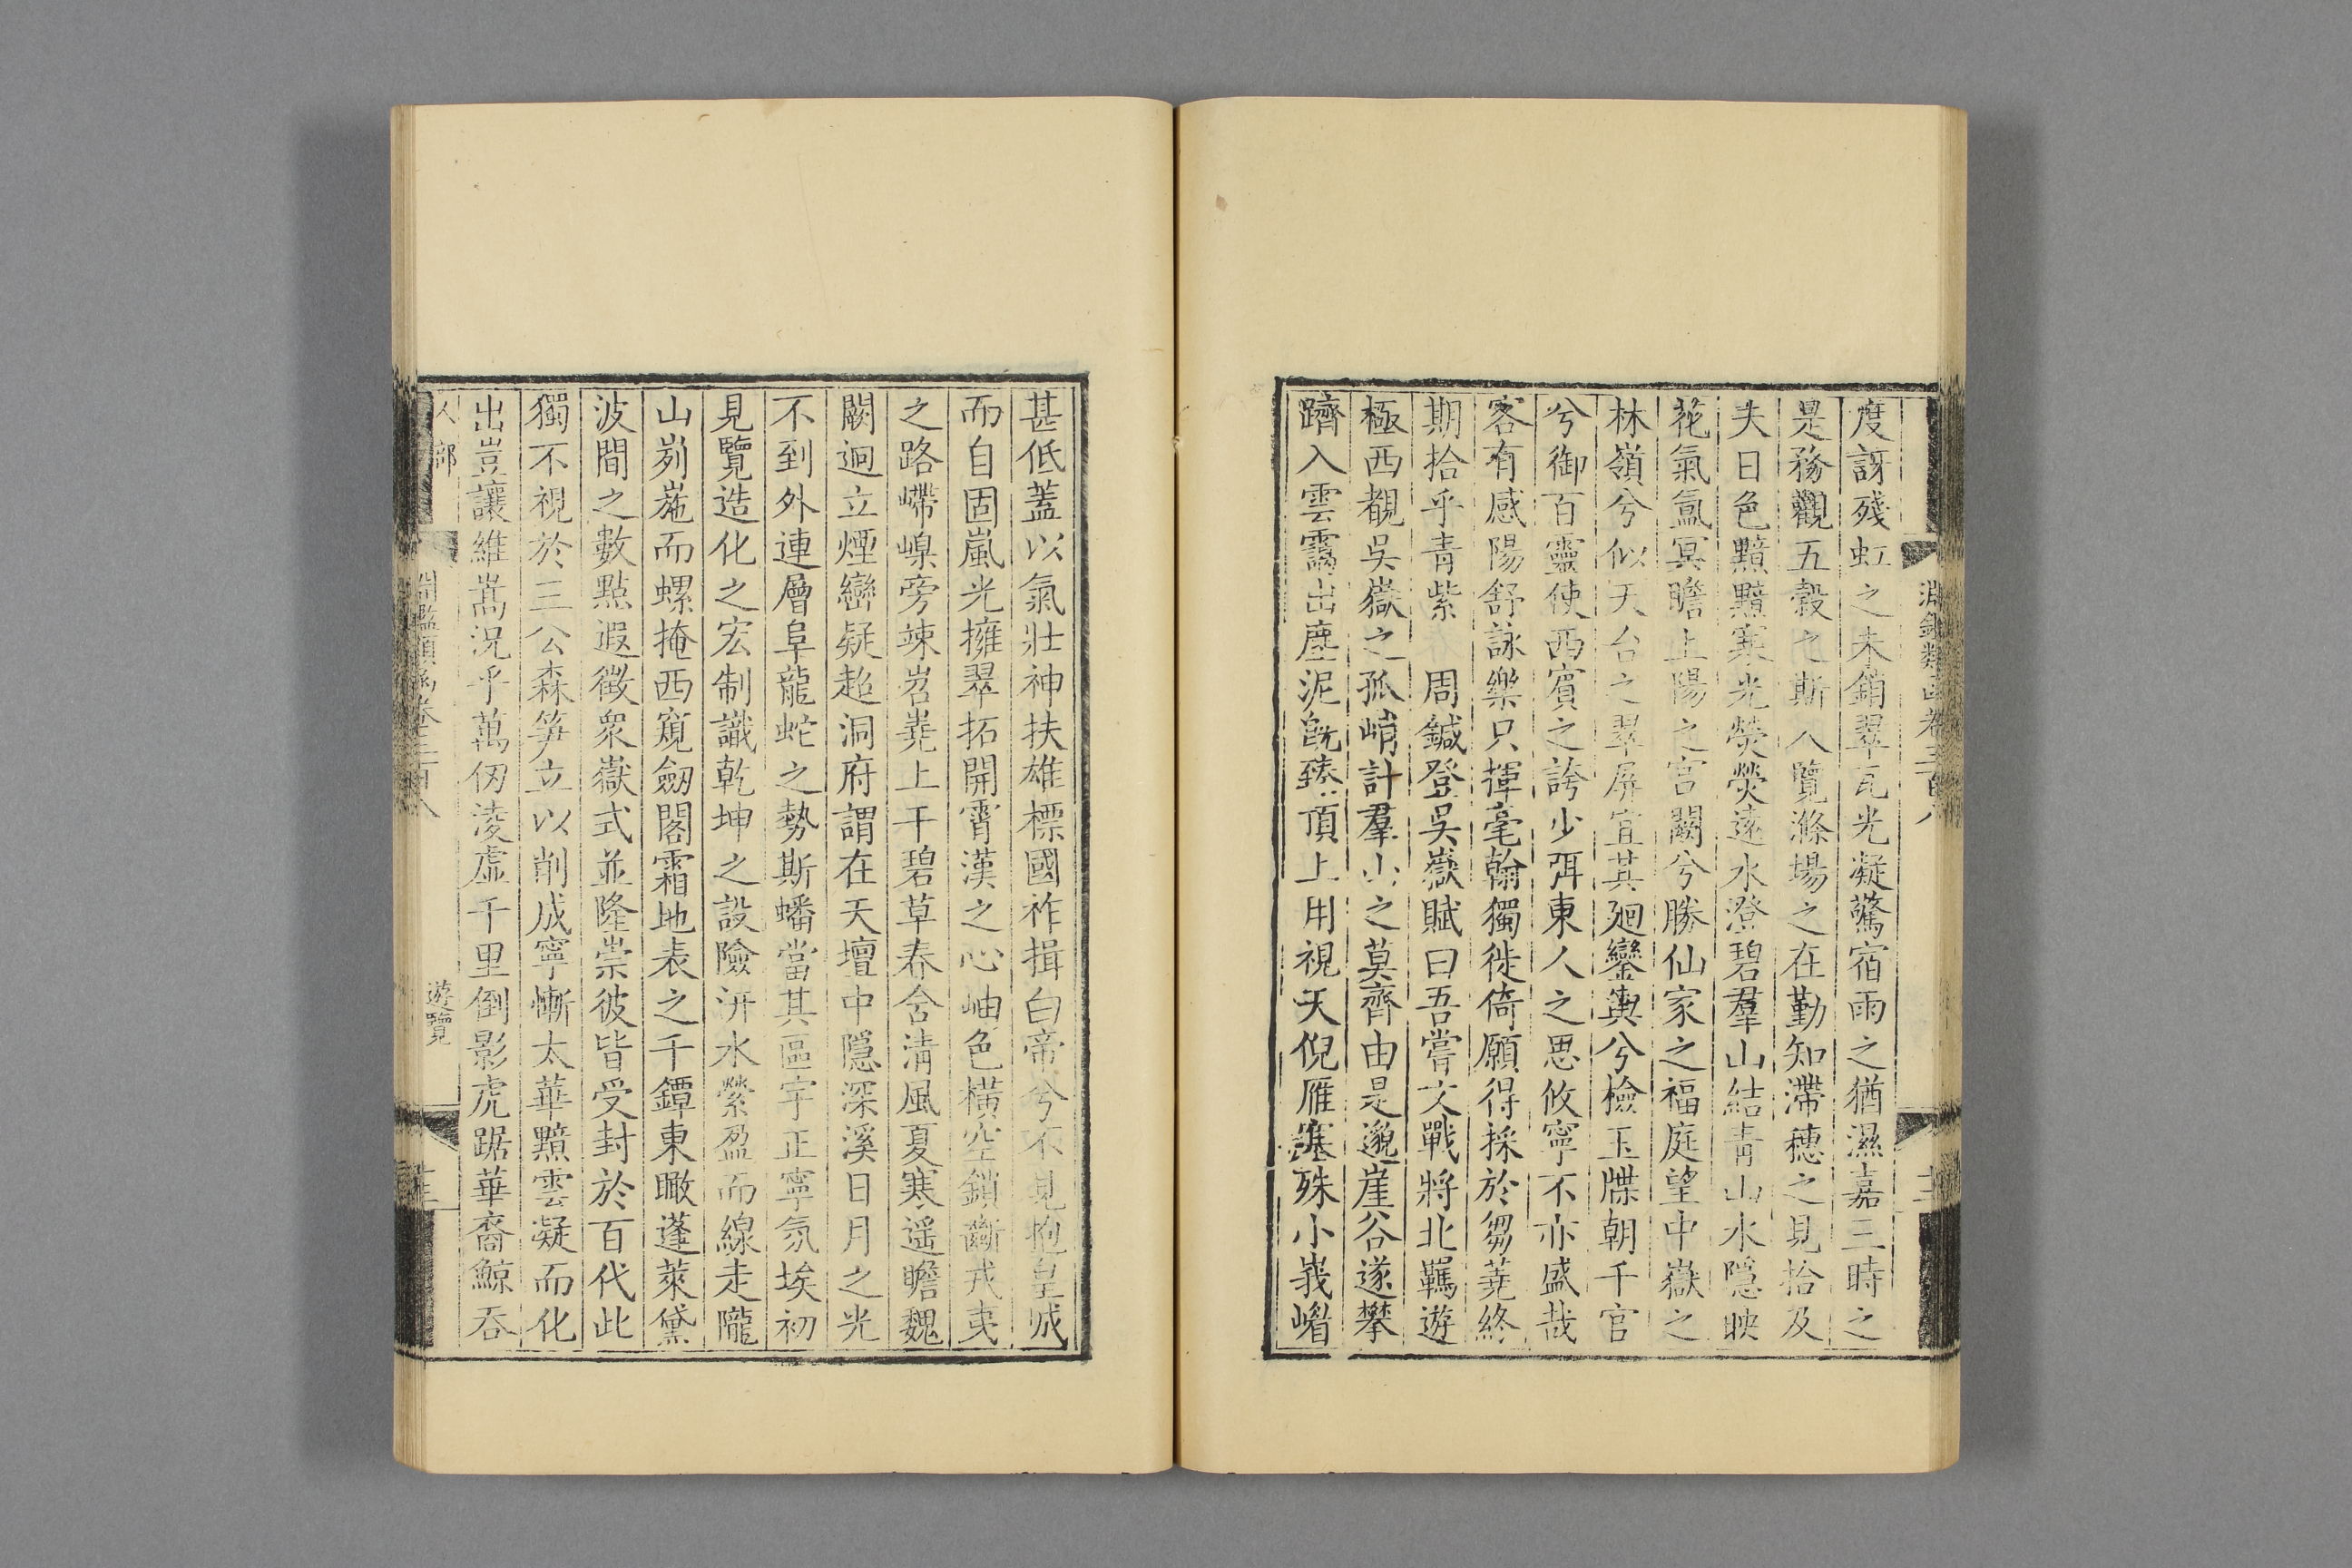 度訝殘虹之未銷翠瓦光凝驚宿雨之猶濕嘉三時之
是務觀五穀之斯入覽滌場之在勤知滯穗之見拾及
夫日色黯黯寒光熒熒遠水澄碧羣山結青山水隱映
花氣氳冥瞻上陽之宫闕兮勝仙家之福庭望中嶽之
林嶺兮似天台之翠屏宜其廻鑾輿兮檢玉牒朝千官
兮御百靈使西賓之誇少弭東人之思攸寧不亦盛哉
客有感陽舒詠樂只揮毫翰獨徙倚願得採於芻蕘終
期拾乎青紫 周鍼登吳嶽賦曰吾嘗文戰將北羈遊
極西覩吳嶽之孤峭計羣山之莫齊由是邈崖谷遂攀
躋入雲靄出塵泥旣臻頂上用視天倪雁塞殊小峩嵋
甚低蓋以氣壯神扶雄標國祚揖白帝兮不見抱皇城
而自固嵐光擁翠拓開霄漢之心岫色橫空鎖斷戎夷
之路嵽嵲旁竦岧嶤上干碧草春含清風夏寒遥瞻魏
闕迥立煙巒疑超洞府謂在天壇中隱深溪日月之光
不到外連層阜龍蛇之勢斯蟠當其區宇正寧氛埃初
見覽造化之宏制識乾坤之設險汧水縈盈而線走隴
山峛崺而螺掩西窺劒閣霜地表之千鐔東瞰蓬萊黛
波間之數點遐徵衆嶽式並隆崇彼皆受封於百代此
獨不視於三公森笋立以削成寧慚太華黯雲凝而化
出豈讓維嵩況乎萬仞淩虛千里倒影虎踞華裔鯨吞
人部
淵鑑類函卷三百八
遊覽